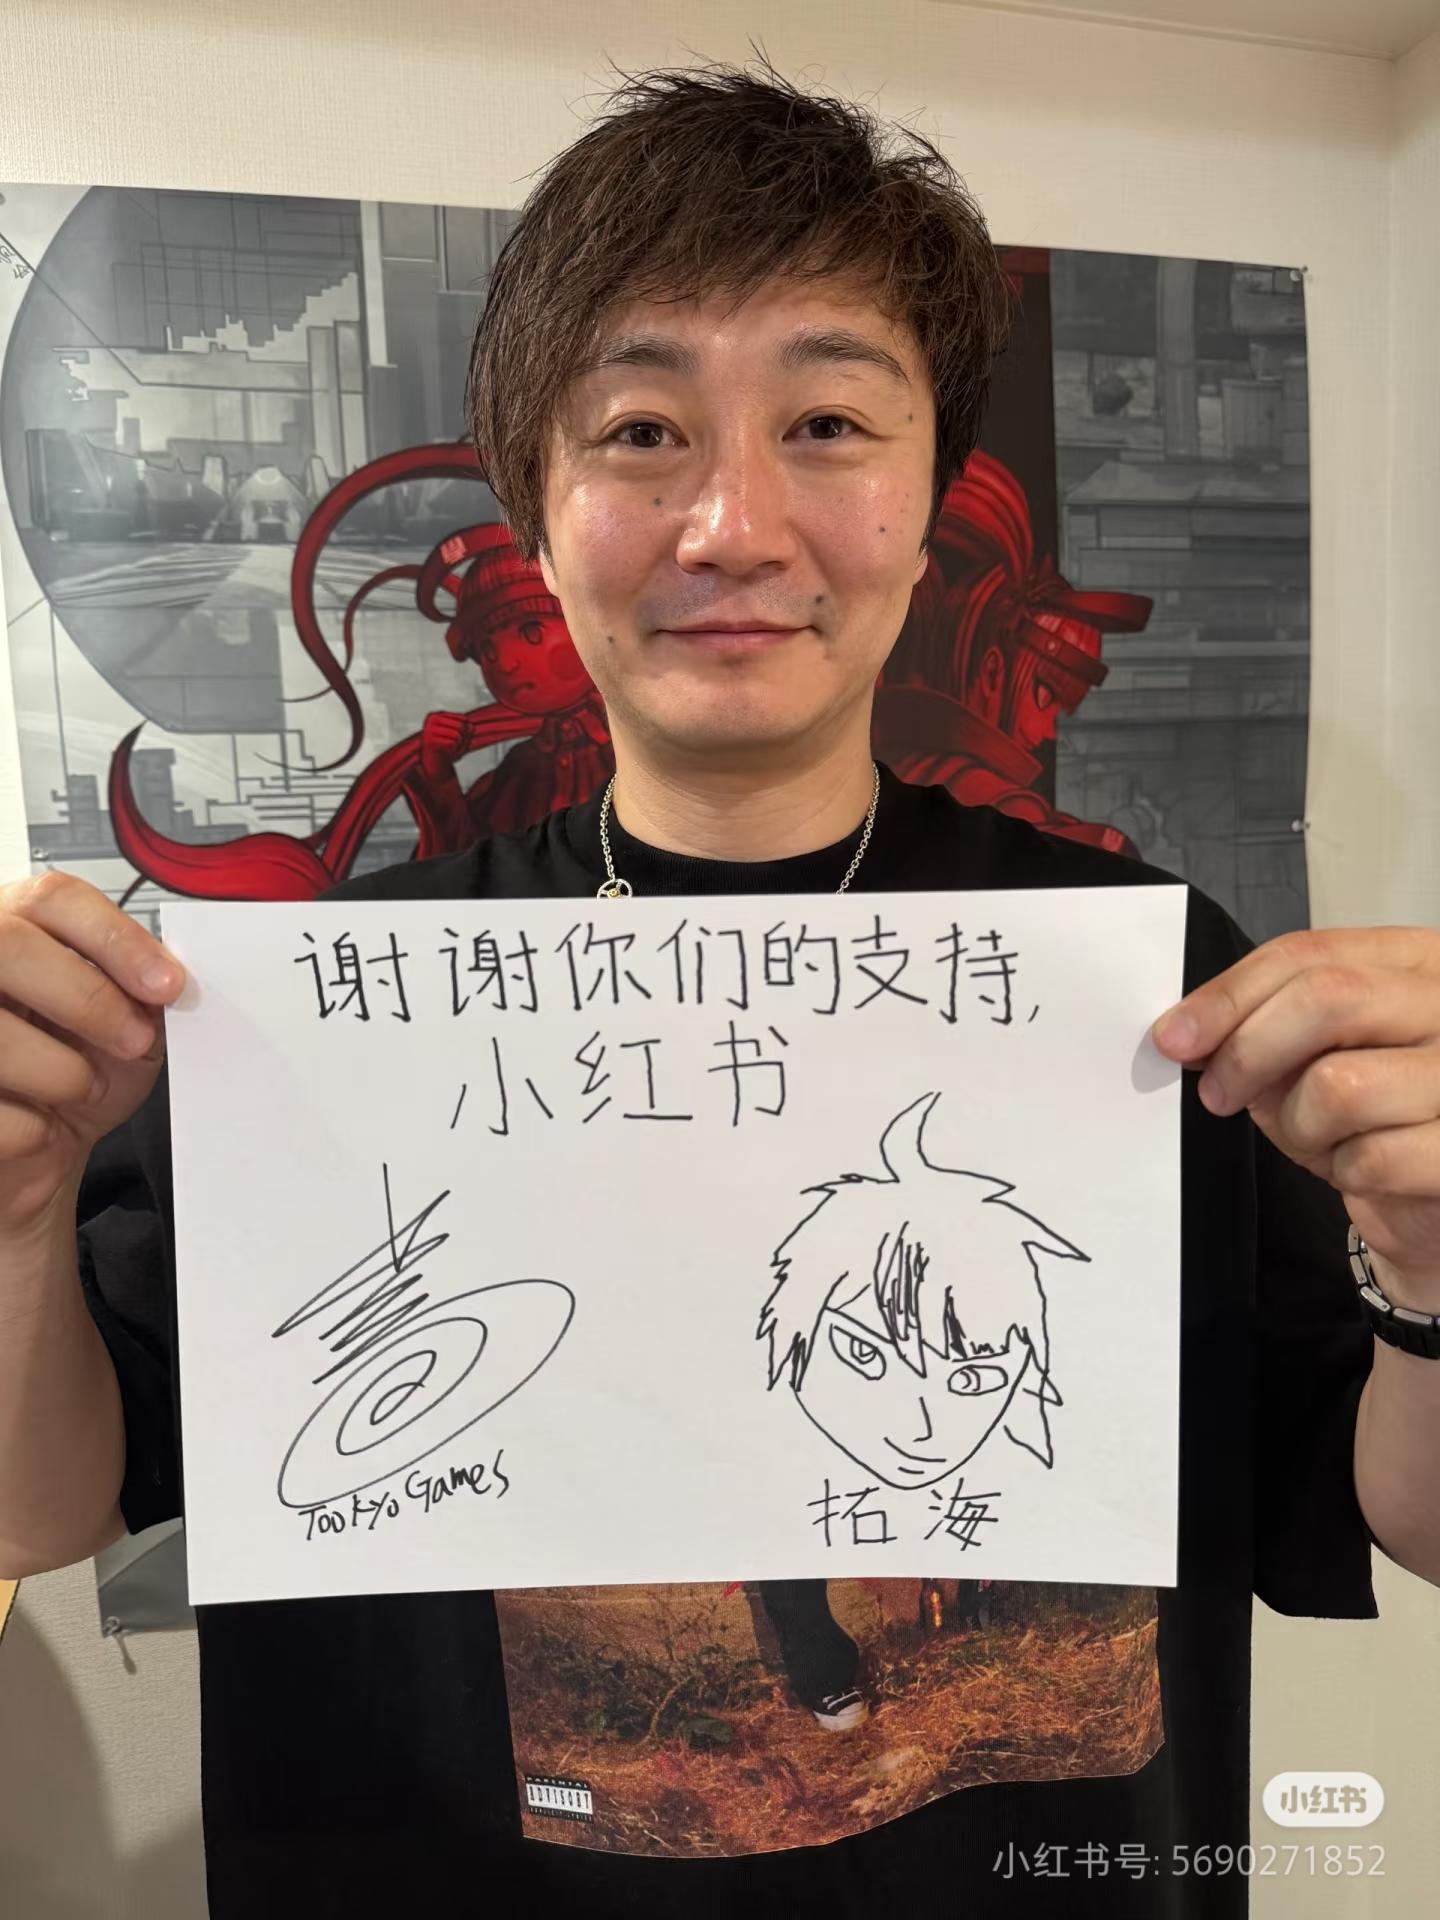 谢谢你们的支持,
小红书
TooKyo Games
拓海
PARENTAL
ADVISORY
EXPLICIT LYRICS
小红书
小红书号: 5690271852